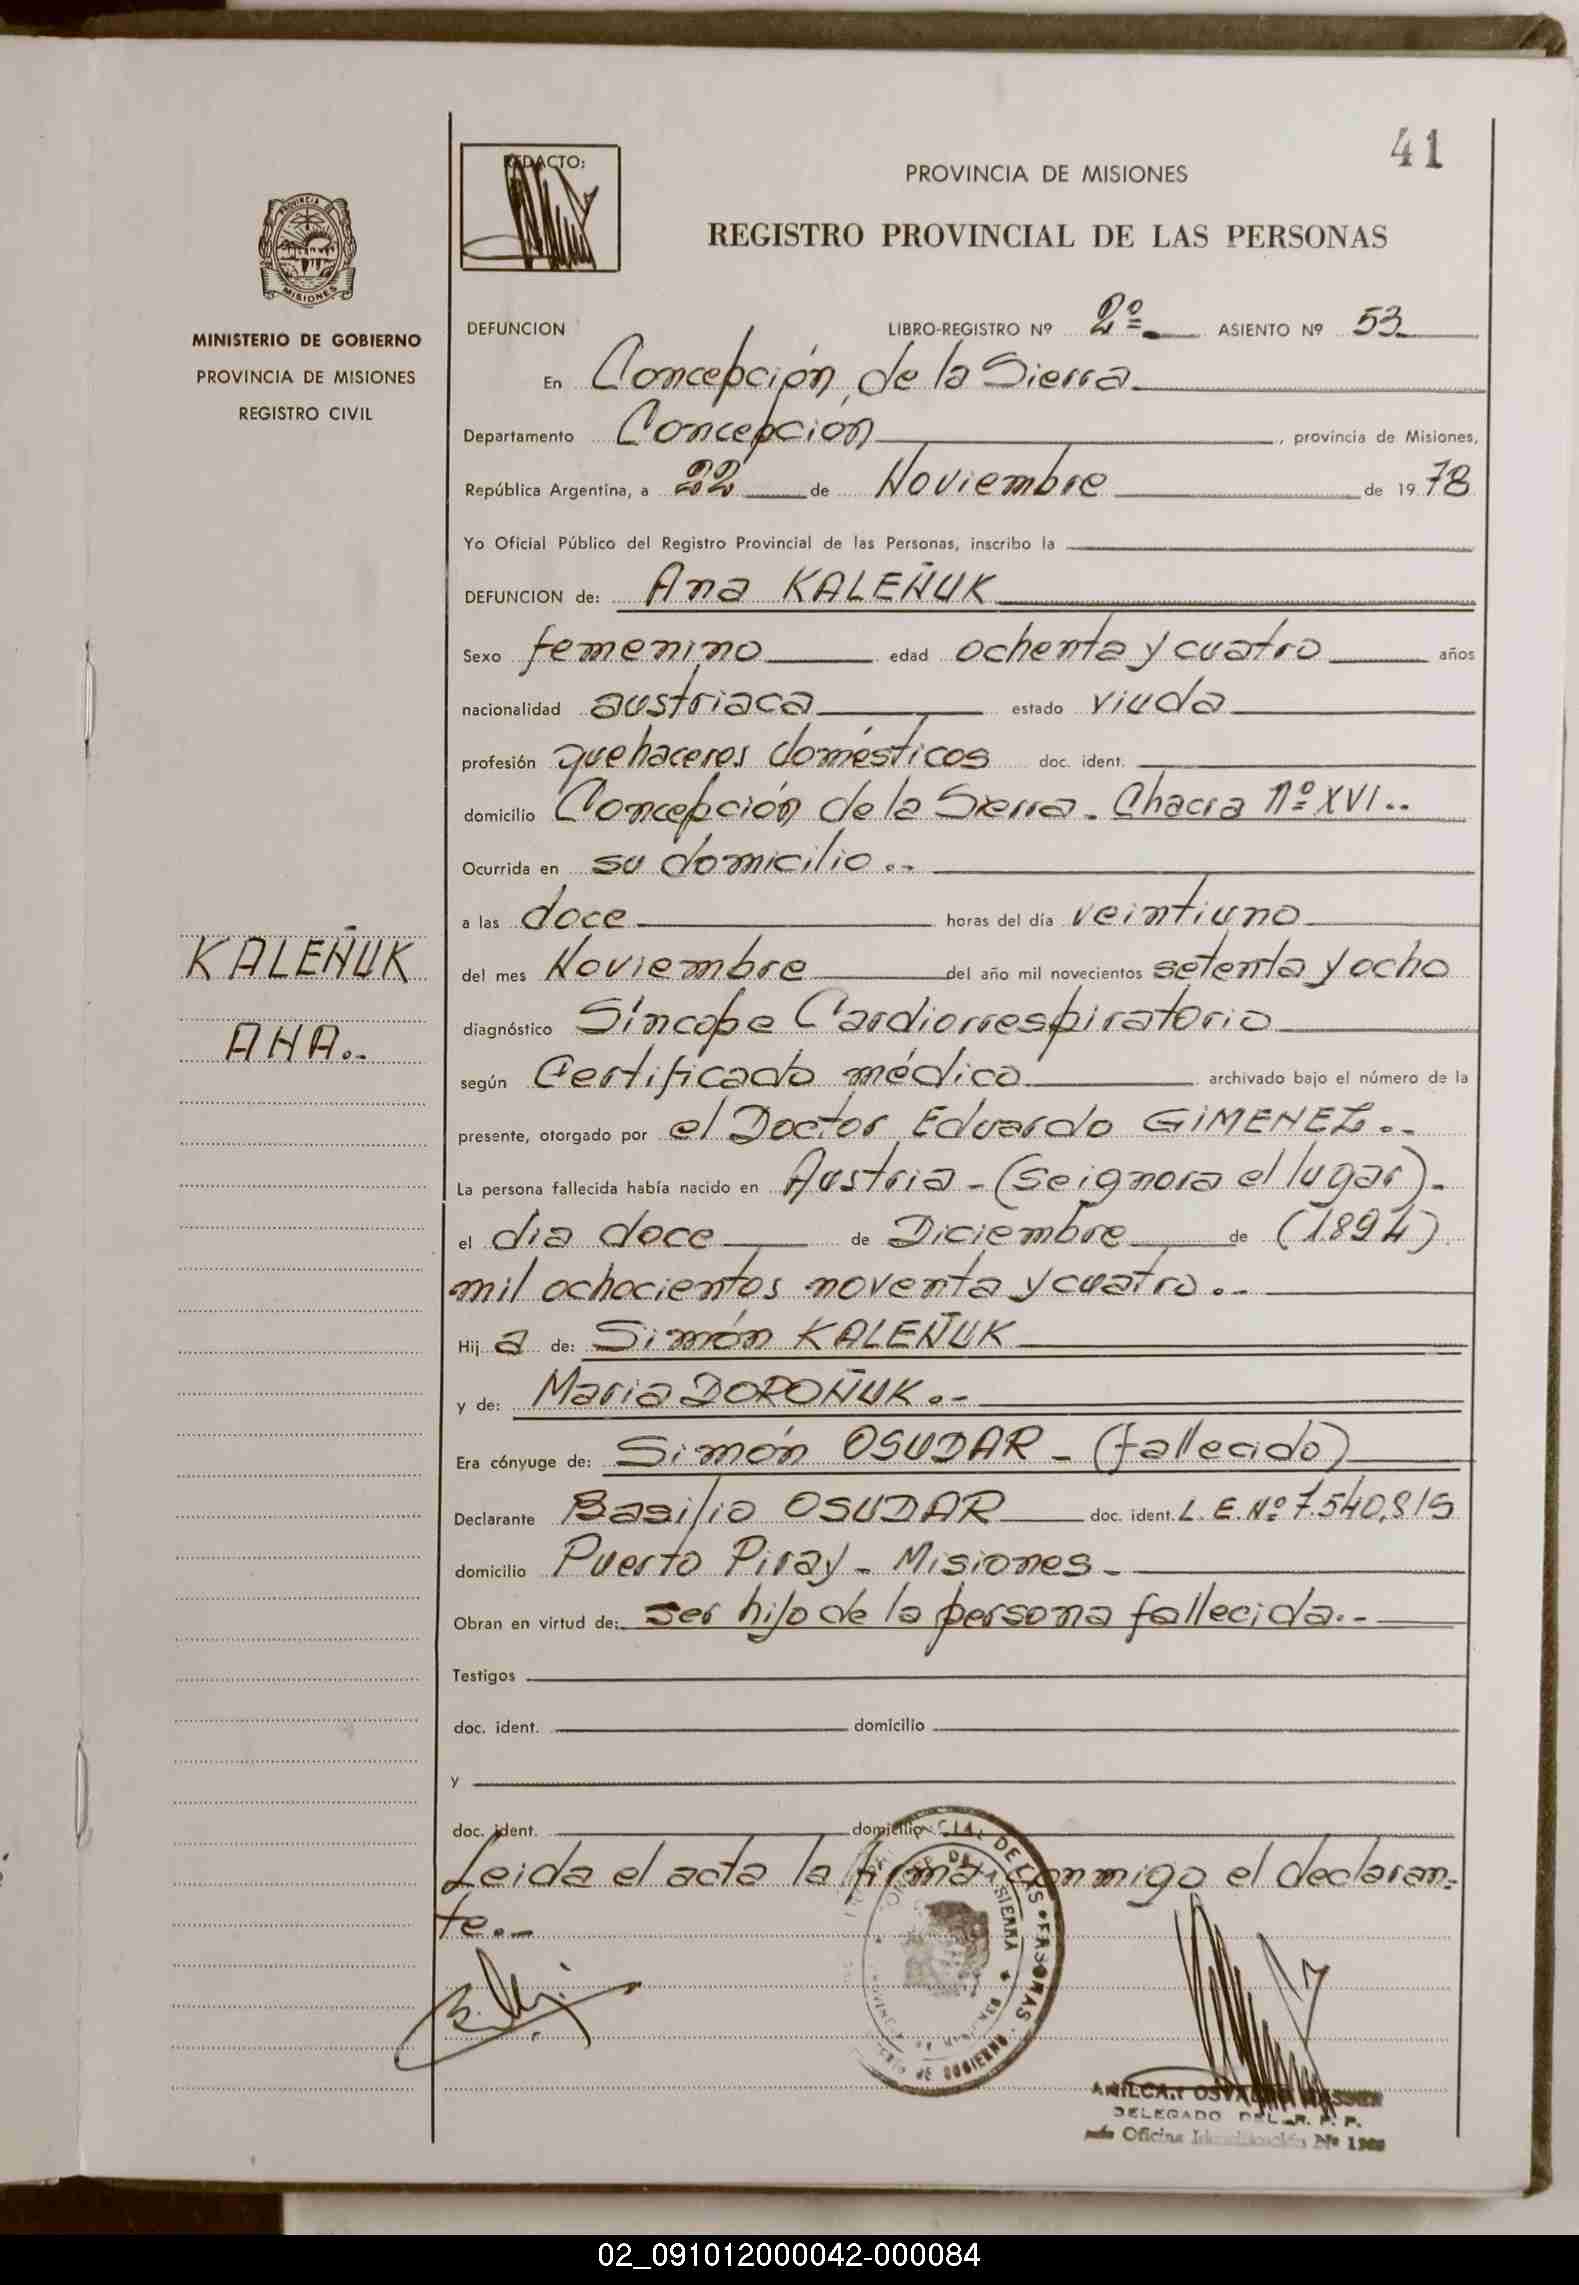 41
REDACTO:
PROVINCIA DE MISIONES
REGISTRO PROVINCIAL DE LAS PERSONAS
PROVINCIA DE
MISIONES
MINISTERIO DE GOBIERNO
PROVINCIA DE MISIONES
REGISTRO CIVIL
DEFUNCION LIBRO-REGISTRO Nº 2º ASIENTO Nº 53
En Concepción de la Sierra
Departamento Concepción, provincia de Misiones,
República Argentina, a 22 de Noviembre de 1978
Yo Oficial Público del Registro Provincial de las Personas, inscribo la
DEFUNCION de: Ana KALEÑUK
Sexo femenino edad ochenta y cuatro años
nacionalidad austriaca estado viuda
profesión quehaceres domésticos doc. ident.
domicilio Concepción de la Sierra - Chacra Nº XVI..
Ocurrida en su domicilio.-
a las doce horas del día veintiuno
del mes Noviembre del año mil novecientos setenta y ocho
diagnóstico Síncope Cardiorrespiratorio
según Certificado médico archivado bajo el número de la
presente, otorgado por el Doctor Eduardo GIMENEZ.-
La persona fallecida había nacido en Austria - (se ignora el lugar).-
el día doce de Diciembre de (1894)
mil ochocientos noventa y cuatro.-
Hij a de: Simón KALEÑUK
y de: Maria DOROÑUK.-
Era cónyuge de: Simón OSUDAR - (fallecido)
Declarante Basilio OSUDAR doc. ident. L.E. Nº 7.540.815
domicilio Puerto Piray - Misiones -
Obran en virtud de: ser hijo de la persona fallecida.-
Testigos
doc. ident. domicilio
y
doc. ident. domicilio
Leida el acta la firma conmigo el declaran-
te.-
KALEÑUK
ANA.-
DE LAS PERSONAS
DE LA SIERRA
DE GOBIERNO
DELEGADO DEL R. P. P.
Oficina Identificación Nº
02_091012000042-000084